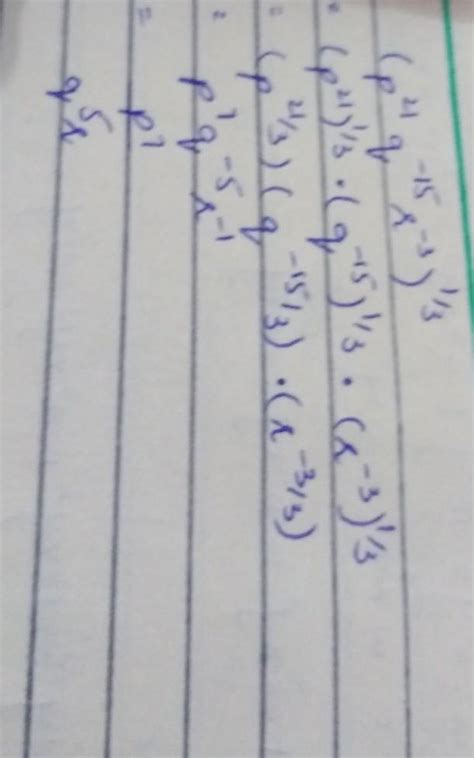 (p^21 q^-15 r^-3)^1/3
= (p^21)^1/3 · (q^-15)^1/3 · (r^-3)^1/3
= (p^21/3) (q^-15/3) · (r^-3/3)
= p^7 q^-5 r^-1
= p^7
q^5 r